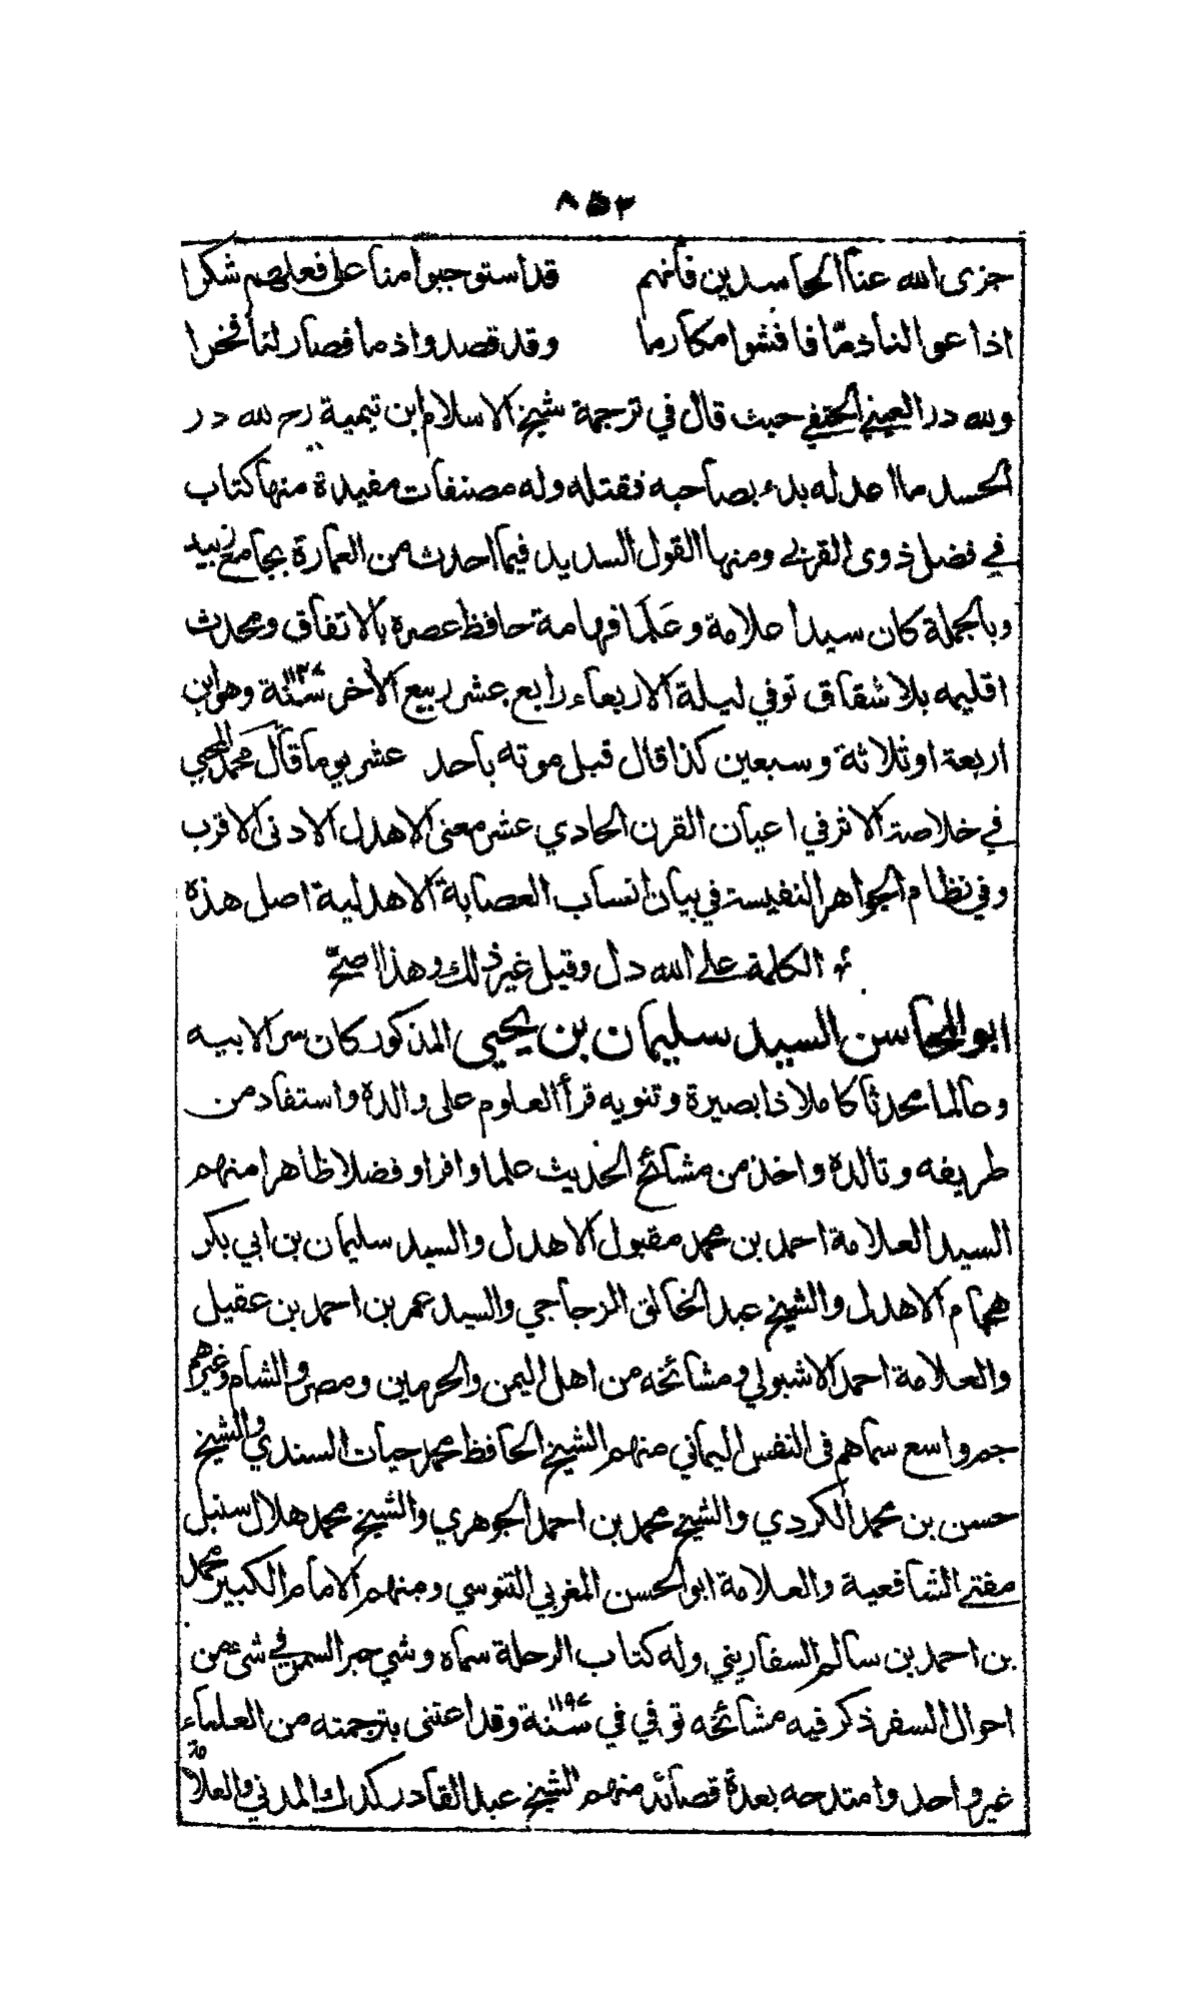 ٨٥٣
جزى الله عنا الحاسدين فانهم قد استوجبوا منا على فعلهم شكرا
اذاعوا لنا ذمّا فافشوا مكارما وقد قصدوا ذما فصار لنا فخرا
ولله در العيني الحنفي حيث قال في ترجمة شيخ الاسلام ابن تيمية رح لله در
الحسد ما اعدله بدء بصاحبه فقتله وله مصنفات مفيدة منها كتاب
في فضل ذوى القربى ومنها القول السديد فيما احدث من العمارة بجامع زبيد
وبالجملة كان سيدا علامة وعَلَما فهامة حافظ عصره بالاتفاق ومحدث
اقليمه بلا شقاق توفي ليلة الاربعاء رابع عشر ربيع الآخر سنة وهو ابن
اربعة او ثلاثة وسبعين كذا قال قبل موته باحد عشر يوما قال محمد المحبي
في خلاصة الاثر في اعيان القرن الحادي عشر معنى الاهدل الادنى الاقرب
وفي نظام الجواهر النفيسة في بيان انساب العصابة الاهدلية اصل هذه
الكلمة على الله دل وقيل غير ذلك وهذا اصحّ
ابو المحاسن السيد سليمان بن يحيى المذكور كان سر الابيه
وعالما محدثا كاملا ذا بصيرة وتنويه قرأ العلوم على والده واستفاد من
طريفه وتالده واخذ من مشائخ الحديث علما وافرا وفضلا ظاهرا منهم
السيد العلامة احمد بن محمد مقبول الاهدل والسيد سليمان بن ابي بكر
هجام الاهدل والشيخ عبد الخالق الزجاجي والسيد عمر بن احمد بن عقيل
والعلامة احمد الاشبولي ومشائخه من اهل اليمن والحرمين ومصر والشام وغيرهم
جم واسع سماهم في النفس اليماني منهم الشيخ الحافظ محمد حيات السندي والشيخ
حسن بن محمد الكردي والشيخ محمد بن احمد الجوهري والشيخ محمد هلال سنبل
مفتي الشافعية والعلامة ابو الحسن المغربي التتوسي ومنهم الامام الكبير محمد
بن احمد بن سالم السفاريني وله كتاب الرحلة سماه وشي حبر السمر في شئ من
احوال السفر ذكر فيه مشائخه توفي في سنة ١١٩٧ وقد اعتنى بترجمته من العلماء
غير واحد وامتدحه بعدة قصائد منهم الشيخ عبد القادر كدك المدني والعلامة